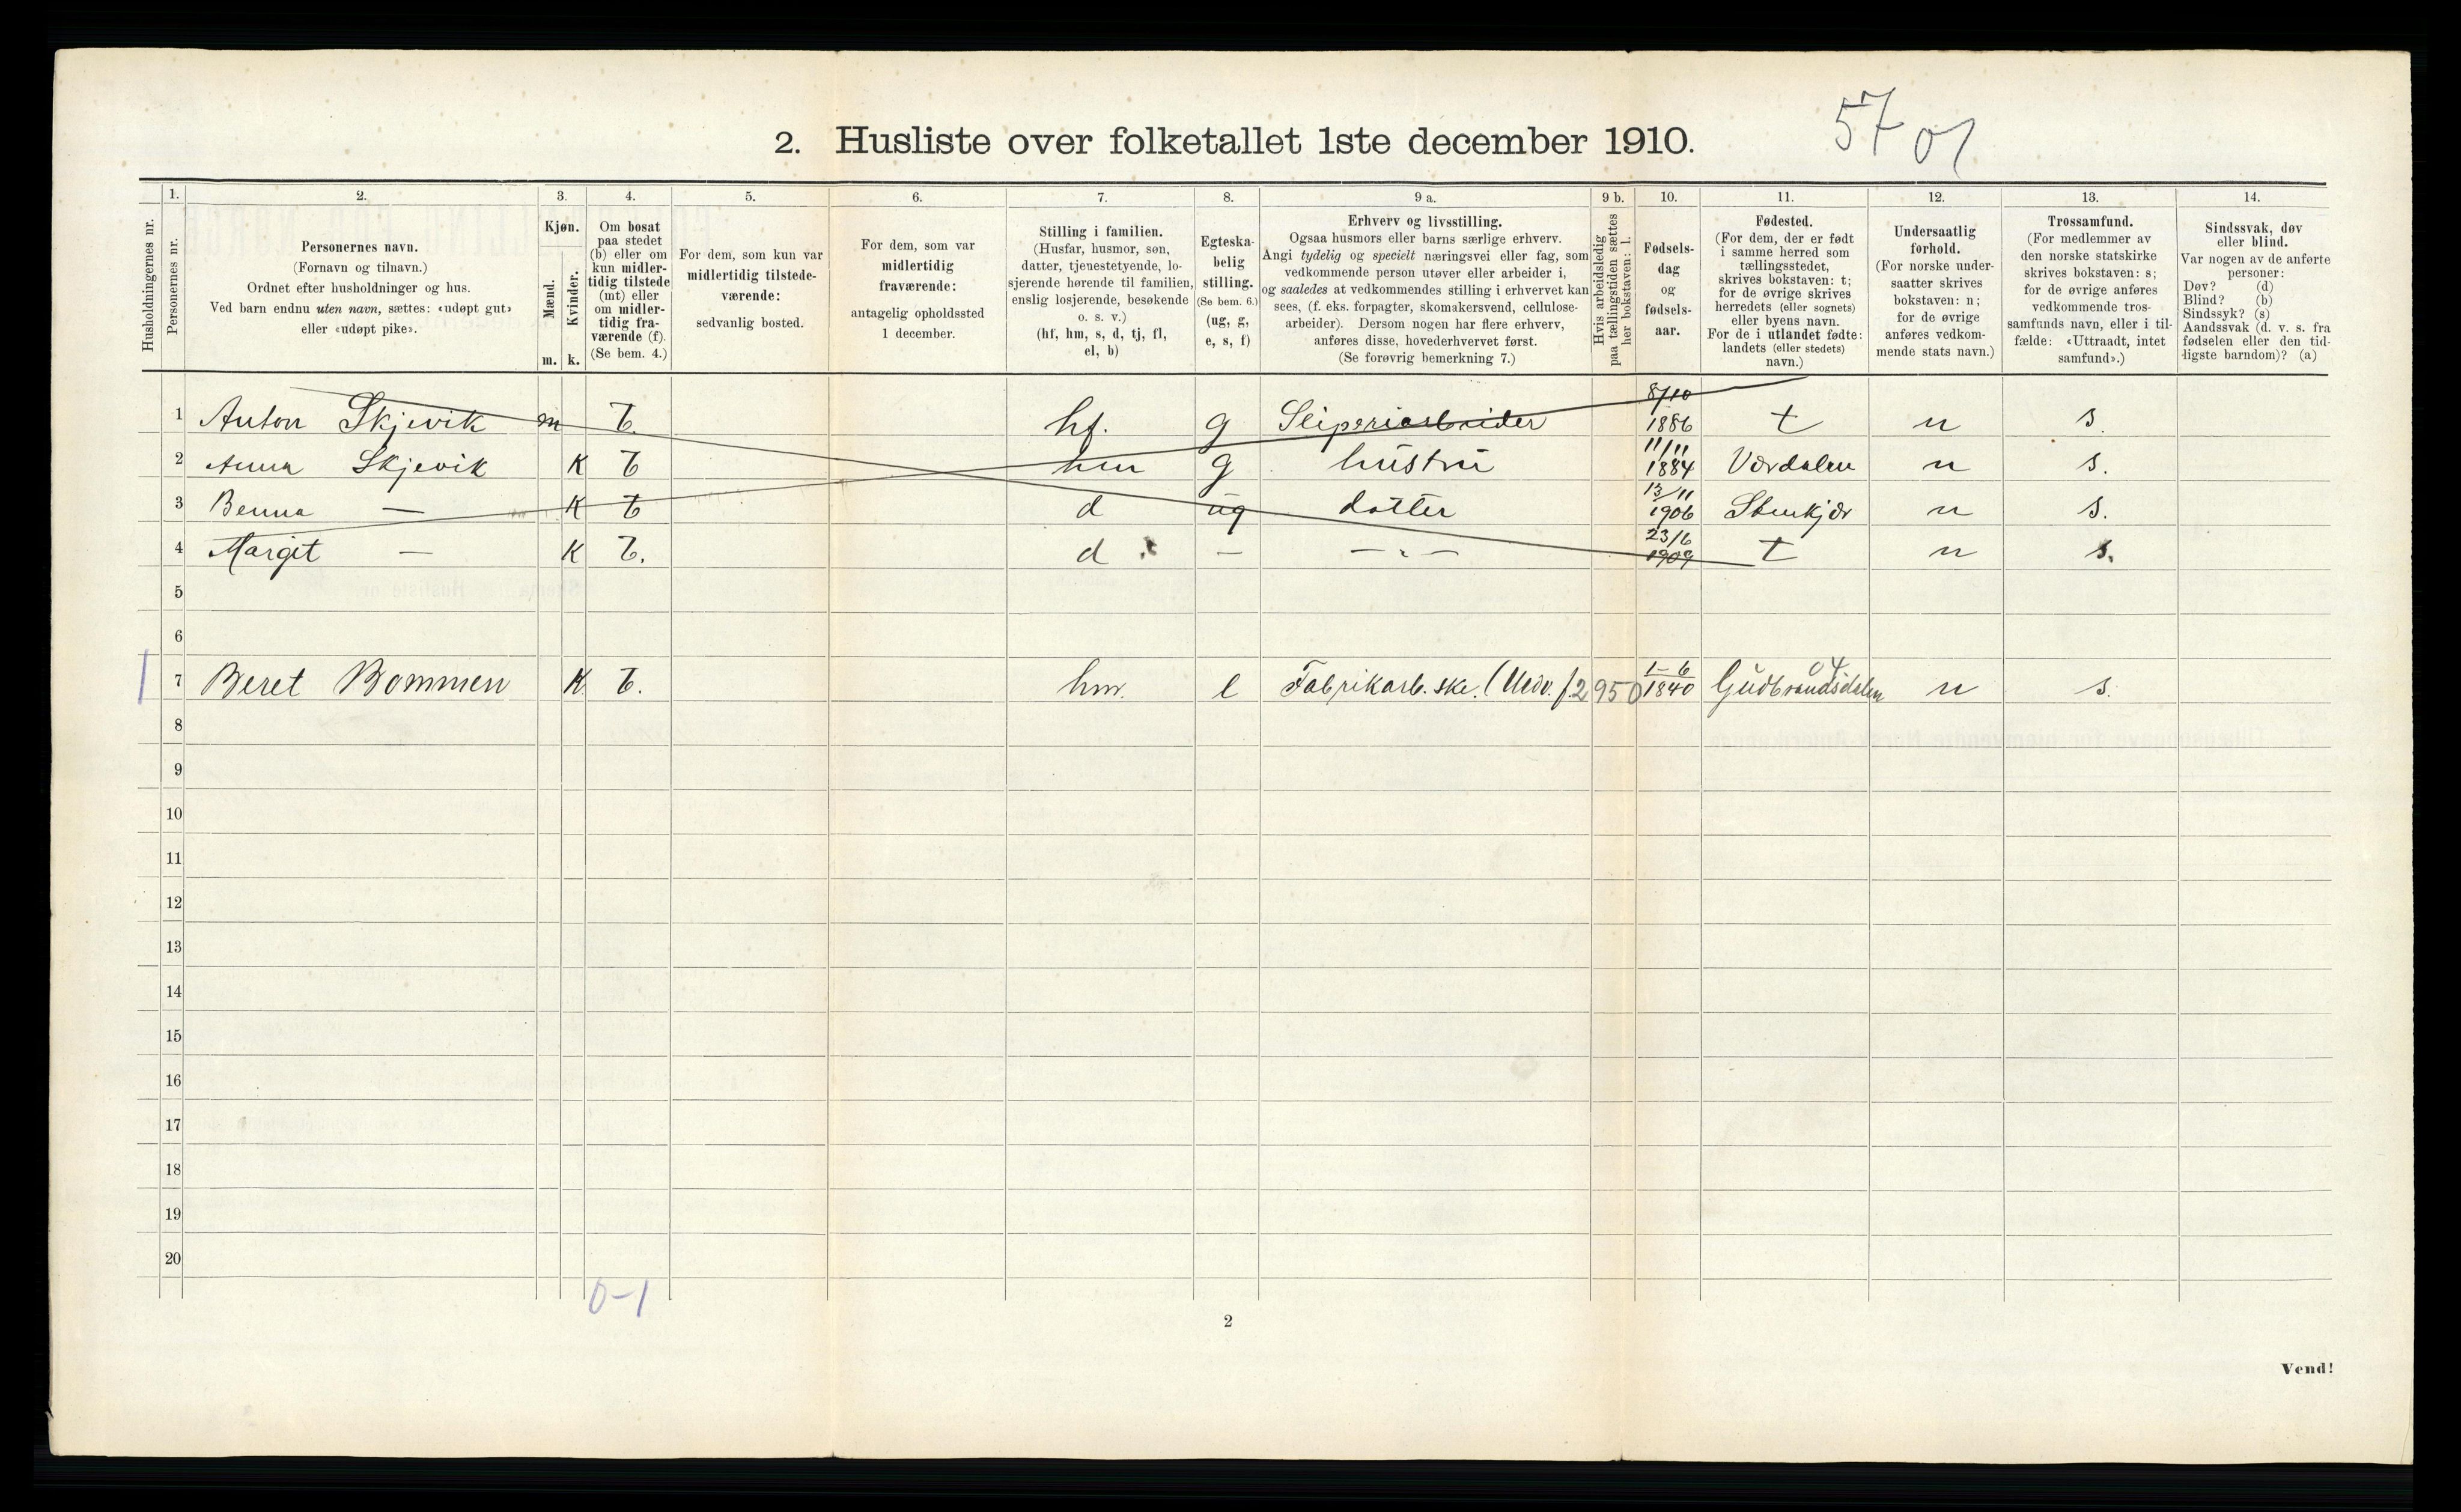 57 01
2. Husliste over folketallet 1ste december 1910.
1. 2. 3. 4. 5. 6. 7. 8. 9 a. 9 b. 10. 11. 12. 13. 14.
Husholdningernes nr.
Personernes nr.
Personernes navn.
(Fornavn og tilnavn.)
Ordnet efter husholdninger og hus.
Ved barn endnu uten navn, sættes: «udøpt gut»
eller «udøpt pike».
Kjøn.
Mænd.
Kvinder.
m. k.
Om bosat
paa stedet
(b) eller om
kun midler-
tidig tilstede
(mt) eller
om midler-
tidig fra-
værende (f).
(Se bem. 4.)
For dem, som kun var
midlertidig tilstede-
værende:
sedvanlig bosted.
For dem, som var
midlertidig
fraværende:
antagelig opholdssted
1 december.
Stilling i familien.
(Husfar, husmor, søn,
datter, tjenestetyende, lo-
sjerende hørende til familien,
enslig losjerende, besøkende
o. s. v.)
(hf, hm, s, d, tj, fl,
el, b)
Egteska-
belig
stilling.
(Se bem. 6.)
(ug, g,
e, s, f)
Erhverv og livsstilling.
Ogsaa husmors eller barns særlige erhverv.
Angi tydelig og specielt næringsvei eller fag, som
vedkommende person utøver eller arbeider i,
og saaledes at vedkommendes stilling i erhvervet kan
sees, (f. eks. forpagter, skomakersvend, cellulose-
arbeider). Dersom nogen har flere erhverv,
anføres disse, hovederhvervet først.
(Se forøvrig bemerkning 7.)
Hvis arbeidsledig
paa tællingstiden sættes
her bokstaven: l.
Fødsels-
dag
og
fødsels-
aar.
Fødested.
(For dem, der er født
i samme herred som
tællingsstedet,
skrives bokstaven: t;
for de øvrige skrives
herredets (eller sognets)
eller byens navn.
For de i utlandet fødte:
landets (eller stedets)
navn.)
Undersaatlig
forhold.
(For norske under-
saatter skrives
bokstaven: n;
for de øvrige
anføres vedkom-
mende stats navn.)
Trossamfund.
(For medlemmer av
den norske statskirke
skrives bokstaven: s;
for de øvrige anføres
vedkommende tros-
samfunds navn, eller i til-
fælde: «Uttraadt, intet
samfund».)
Sindssvak, døv
eller blind.
Var nogen av de anførte
personer:
Døv? (d)
Blind? (b)
Sindssyk? (s)
Aandssvak (d. v. s. fra
fødselen eller den tid-
ligste barndom)? (a)
1 Anton Skjevik m b. hf. g Sliperiarbeider 8/10 1886 t n s.
2 Anna Skjevik K b hm g hustru 11/11 1884 Værdalen n s.
3 Benna — K b d ug dotter 13/11 1906 Stenkjær n s.
4 Margit — K b. d — — „ — 23/6 1909 t n s.
5
6
1 7 Beret Bommen K b. hm. e Fabrikarb.ske. 2950 1-6 1840 Gudbrandsdalen 04 n s.
8
9
10
11
12
13
14
15
16
17
18
19
20
0-1
2
Vend!